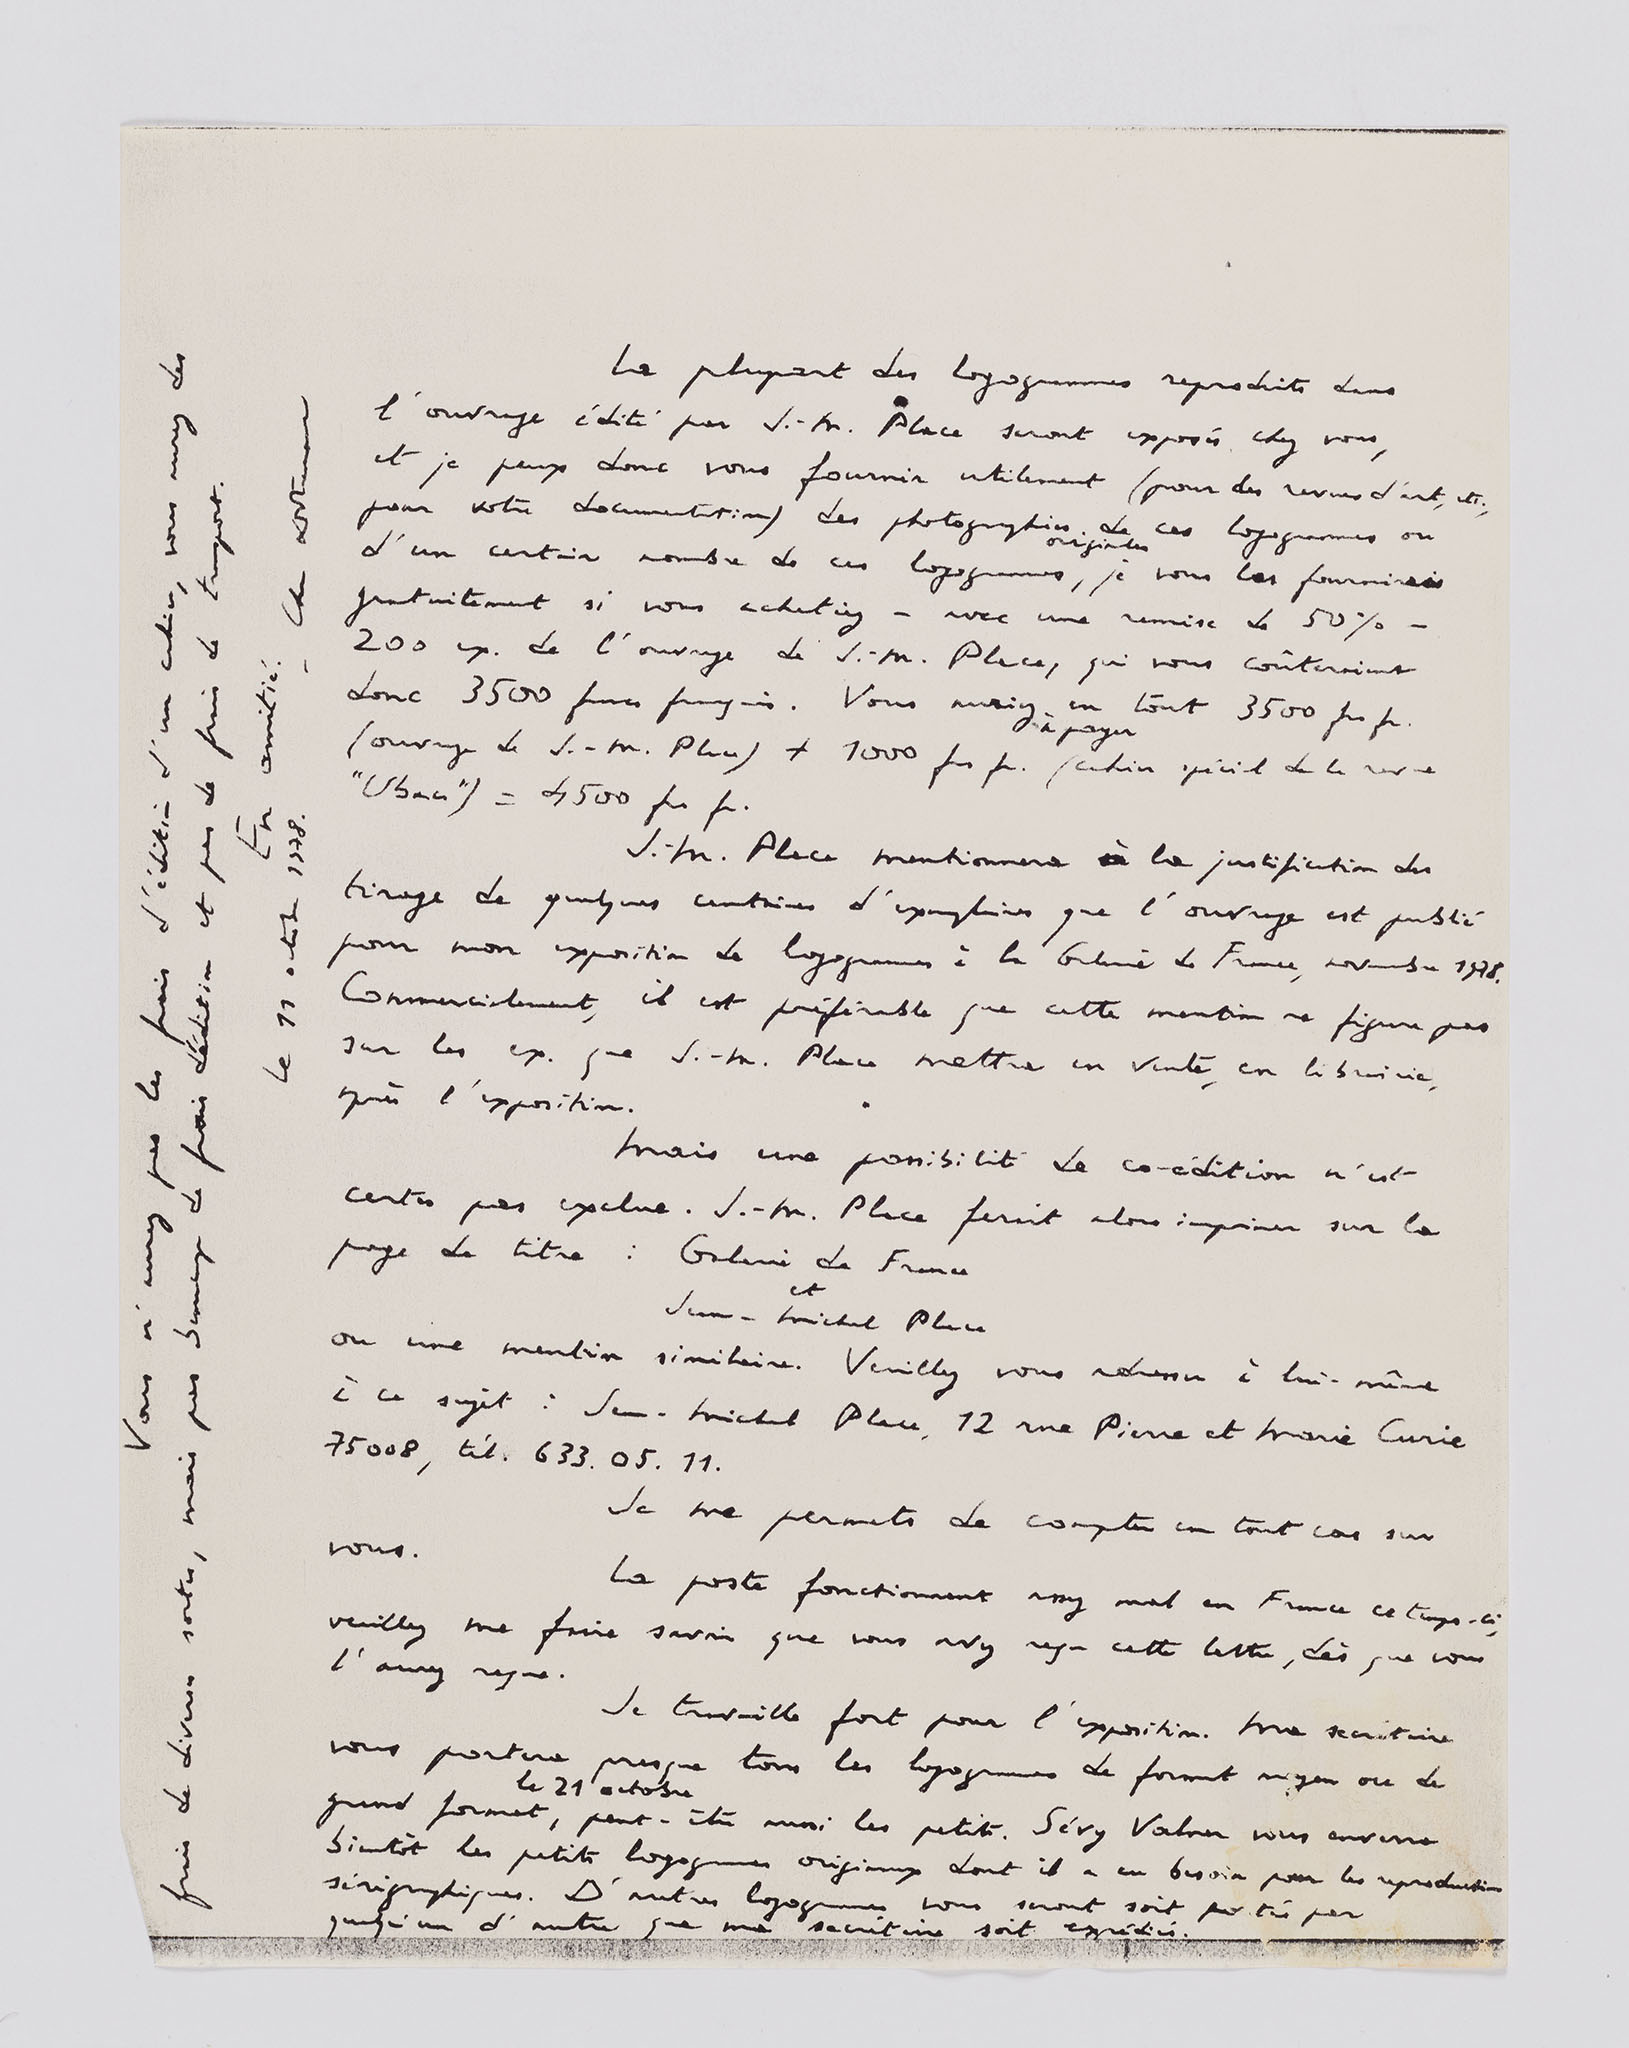 La plupart des logogrammes reproduits dans
l'ouvrage édité par J.-M. Place seront exposés chez vous,
et je peux donc vous fournir utilement (pour des revues d'art, etc.,
pour votre documentation) des photographies de ces logogrammes ou
d'un certain nombre de ces logogrammes originaux, je vous les fournirais
gratuitement si vous achetiez – avec une remise de 50% –
200 ex. de l'ouvrage de J.-M. Place, qui vous coûteraient
donc 3500 francs français. Vous auriez en tout à payer 3500 frs fr.
(ouvrage de J.-M. Place) + 1000 frs fr. (cahier spécial de la revue
"Ubacs") = 4500 frs fr.
J.-M. Place mentionnera à la justification des
tirage de quelques centaines d'exemplaires que l'ouvrage est publié
pour mon exposition de logogrammes à la Galerie de France, novembre 1978.
Commercialement, il est préférable que cette mention ne figure pas
sur les ex. que J.-M. Place mettra en vente, en librairie,
après l'exposition.
Mais une possibilité de co-édition n'est
certes pas exclue. J.-M. Place ferait alors imprimer sur la
page de titre : Galerie de France
et
Jean-Michel Place
ou une mention similaire. Veuillez vous adresser à lui-même
à ce sujet : Jean-Michel Place, 12 rue Pierre et Marie Curie
75008, tél. 633.05.11.
Je me permets de compter en tout cas sur
vous.
La poste fonctionnant assez mal en France ce temps-ci,
veuillez me faire savoir que vous avez reçu cette lettre, dès que vous
l'aurez reçue.
Je travaille fort pour l'exposition. Ma secrétaire
vous portera presque tous les logogrammes de format moyen ou de
grand format, le 21 octobre peut-être aussi les petits. Sévy Valner vous enverra
bientôt les petits logogrammes originaux dont il a eu besoin pour les reproductions
sérigraphiques. D'autres logogrammes vous seront soit portés par
quelqu'un d'autre que ma secrétaire soit expédiés.
Vous n'aurez pas les frais d'édition d'un cahier, vous aurez des
frais de diverses sortes, mais pas beaucoup de frais d'édition et pas de frais de transport.
En amitié.
Le 11 octobre 1978. – Ch. Dotremont